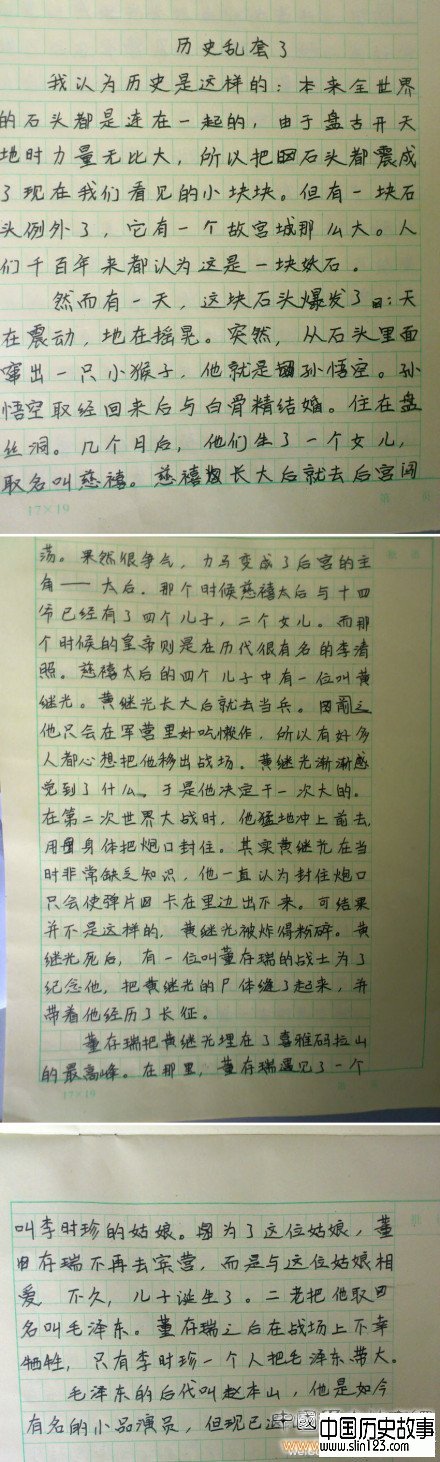 历史乱套了
我认为历史是这样的：本来全世界
的石头都是连在一起的，由于盘古开天
地时力量无比大，所以把石头都震成
了现在我们看见的小块块。但有一块石
头例外了，它有一个故宫城那么大。人
们千百年来都认为这是一块妖石。
然而有一天，这块石头爆发了：天
在震动，地在摇晃。突然，从石头里面
窜出一只小猴子，他就是孙悟空。孙
悟空取经回来后与白骨精结婚。住在盘
丝洞。几个月后，他们生了一个女儿，
取名叫慈禧。慈禧长大后就去后宫闯
17×19
第 页
荡。果然很争气，力马变成了后宫的主
角——太后。那个时候慈禧太后与十四
爷已经有了四个儿子，二个女儿。而那
个时候的皇帝则是在历代很有名的李清
照。慈禧太后的四个儿子中有一位叫黄
继光。黄继光长大后就去当兵。
他只会在军营里好吃懒作，所以有好多
人都心想把他移出战场。黄继光渐渐感
觉到了什么。于是他决定干一次大的。
在第二次世界大战时，他猛地冲上前去，
用身体把炮口封住。其实黄继光在当
时非常缺乏知识，他一直认为封住炮口
只会使弹片卡在里边出不来。可结果
并不是这样的，黄继光被炸得粉碎。黄
继光死后，有一位叫董存瑞的战士为了
纪念他，把黄继光的尸体缝了起来，并
带着他经历了长征。
董存瑞把黄继光埋在了喜雅码拉山
的最高峰。在那里，董存瑞遇见了一个
17×19
叫李时珍的姑娘。因为了这位姑娘，董
存瑞不再去宾营，而是与这位姑娘相
爱，不久，儿子诞生了。二老把他取
名叫毛泽东。董存瑞之后在战场上不幸
牺牲，只有李时珍一个人把毛泽东带大。
毛泽东的后代叫赵本山，他是如今
有名的小品演员，但现已
中国历史故事
www.slin123.com